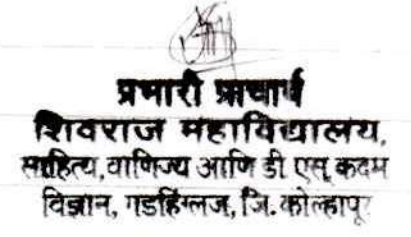 प्रभारी प्राचार्य
शिवराज महाविद्यालय,
साहित्य, वाणिज्य आणि डी एस् कदम
विज्ञान, गडहिंग्लज, जि. कोल्हापूर